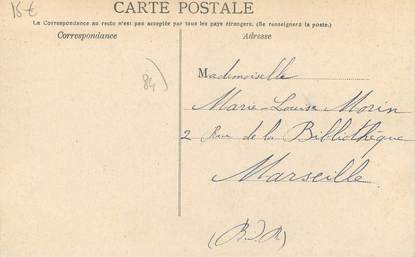 15 €
CARTE POSTALE
La Correspondance au recto n'est pas acceptée par tous les pays étrangers. (Se renseigner à la poste.)
Correspondance
Adresse
84)
Mademoiselle
Marie-Louise Morin
2 Rue de la Bibliothèque
Marseille.
(B.d.R)